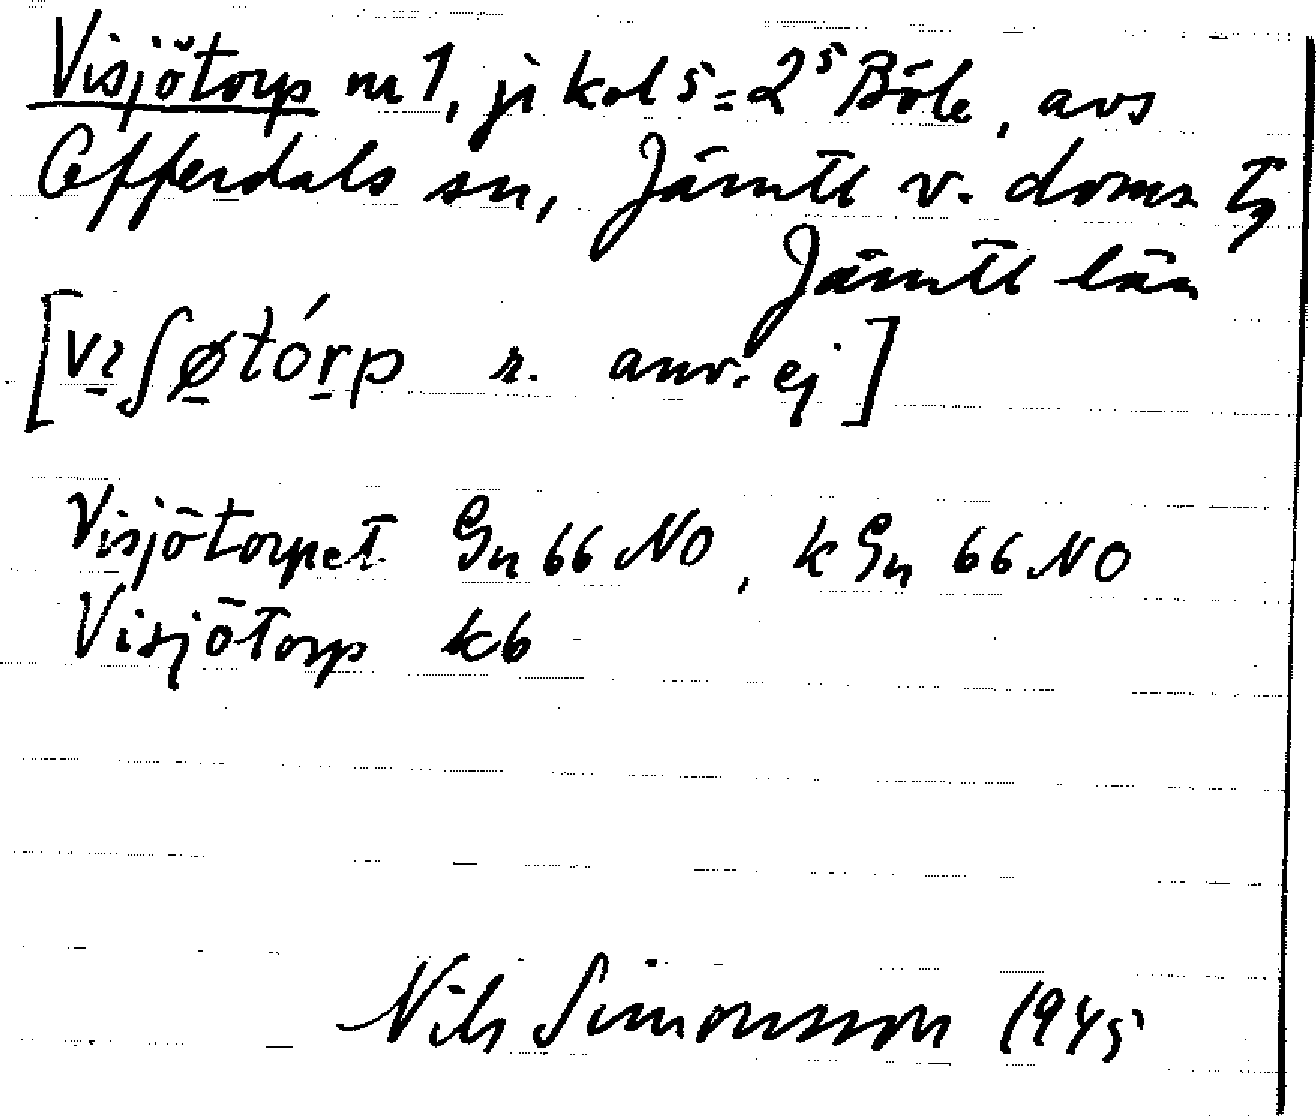 Visjötorp nr 1, ji kol 5 = 2⁵ Böle, avs
Offerdals sn, Jämtl v. doms tg
Jämtl län
[vıʃøtórp s. anv. ej]
Visjötorpet Gn 66 NO, k Gn 66 NO
Visjötorp kb
Nils Simonsson 1945